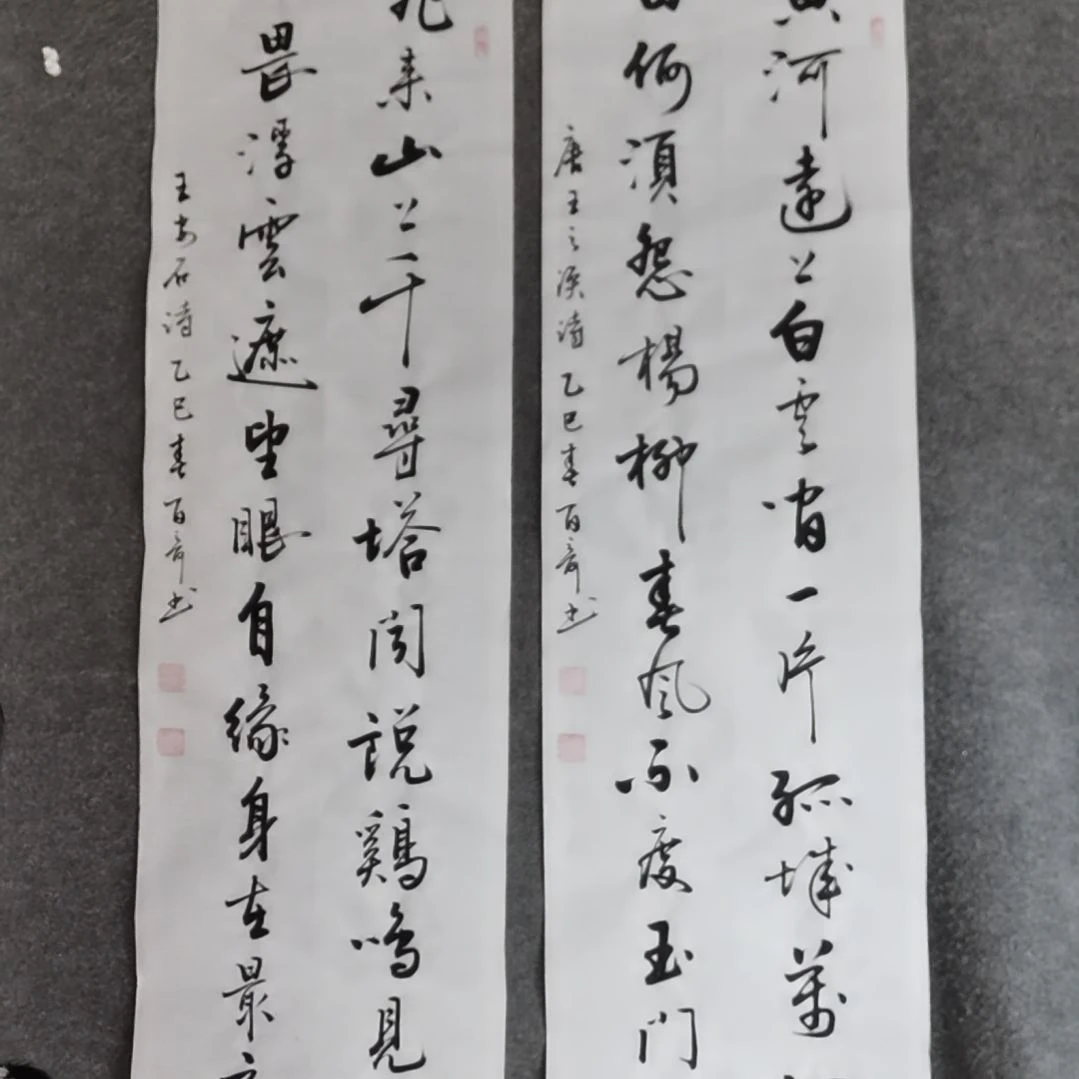 黄河遠上白雲間一片孤城萬
何須怨楊柳春風不度玉門
唐王之渙诗乙巳春百奇书
飛来山上千尋塔聞說鷄鳴見
畏浮雲遮望眼自緣身在最
王安石诗乙巳春百奇书